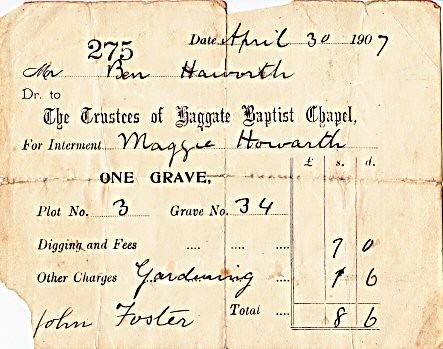 275 Date April 30 1907
Mr Ben Haworth
Dr. to
The Trustees of Haggate Baptist Chapel,
For Interment Maggie Howarth
£ s. d.
ONE GRAVE,
Plot No. 3 Grave No. 34
Digging and Fees .... .... .... 7 0
Other Charges Gardening .... 1 6
John Foster Total .... .... 8 6